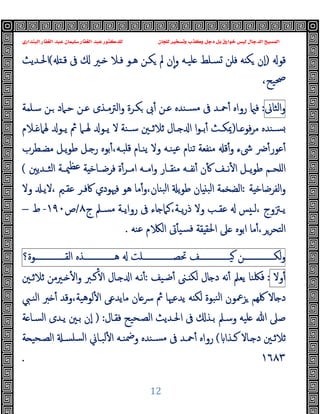 المسيح الدجال ليس خوارق بل دجل وكذب وتسخير للجان للدكتور عبد الغفار سليمان عبد الغفار البنداري
قوله (إن يكنه فلن تسلط عليه وإن لم يكن هو فلا خير لك فى قتله)الحديث
صحيح،
والثانى: فيما رواه أحمد فى مسنده عن أبى بكرة والترمذى عن حماد بن سلمة
بسنده مرفوعا(يمكث أبوا الدجال ثلاثين سنة لا يولد لهما ثم يولد لهماغلام
أعورأضر شىء وأقله منفعة تنام عينه ولا ينام قلبه،أبوه رجل طويل مضطرب
اللحم طويل الأنف كأن أنفه منقار وامه امرأة فرضاخية عظيمة الثديين )
والفرضاخية :الضخمة البنيان طويلة البنان،وأما هو فيهودي كافر عقيم ،لايلد ولا
يتزوج ،ليس له عقب ولا ذرية،كماجاء فى رواية مسلم ج٨/ص١٩٠- ط –
التحرير،أما ابوه على الحقيقة فسيأتى الكلام عنه .
ولكن كيف تحصلت له هذه القوة؟
أولا : فكلنا يعلم أنه دجال لكننى أضيف :أنه الدجال الأكبر والأخيرمن ثلاثين
دجالا كلهم يزعمون النبوة لكنه يدعيها ثم سرعان مايدعى الألوهية،وقد أخبر النبي
صلى الله عليه وسلم بذلك فى الحديث الصحيح فقال: ( إن بين يدى الساعة
ثلاثين دجالا كذابا) رواه أحمد فى مسنده وضمنه الألبانى السلسلة الصحيحة
١٦٨٣ .
12